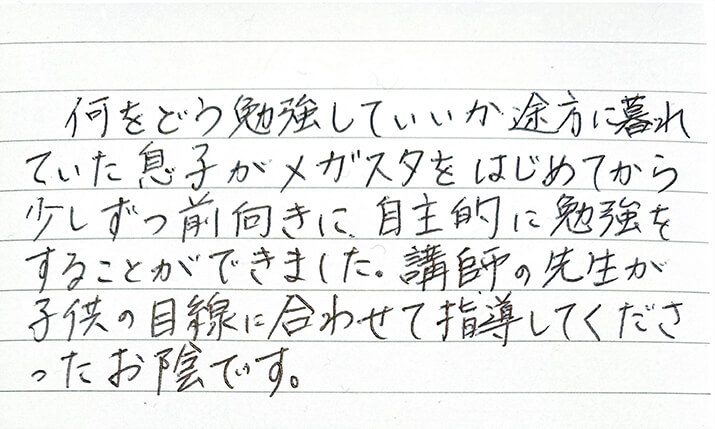 何をどう勉強していいか途方に暮れ
ていた息子がメガスタをはじめてから
少しずつ前向きに、自主的に勉強を
することができました。講師の先生が
子供の目線に合わせて指導してくださ
ったお陰です。